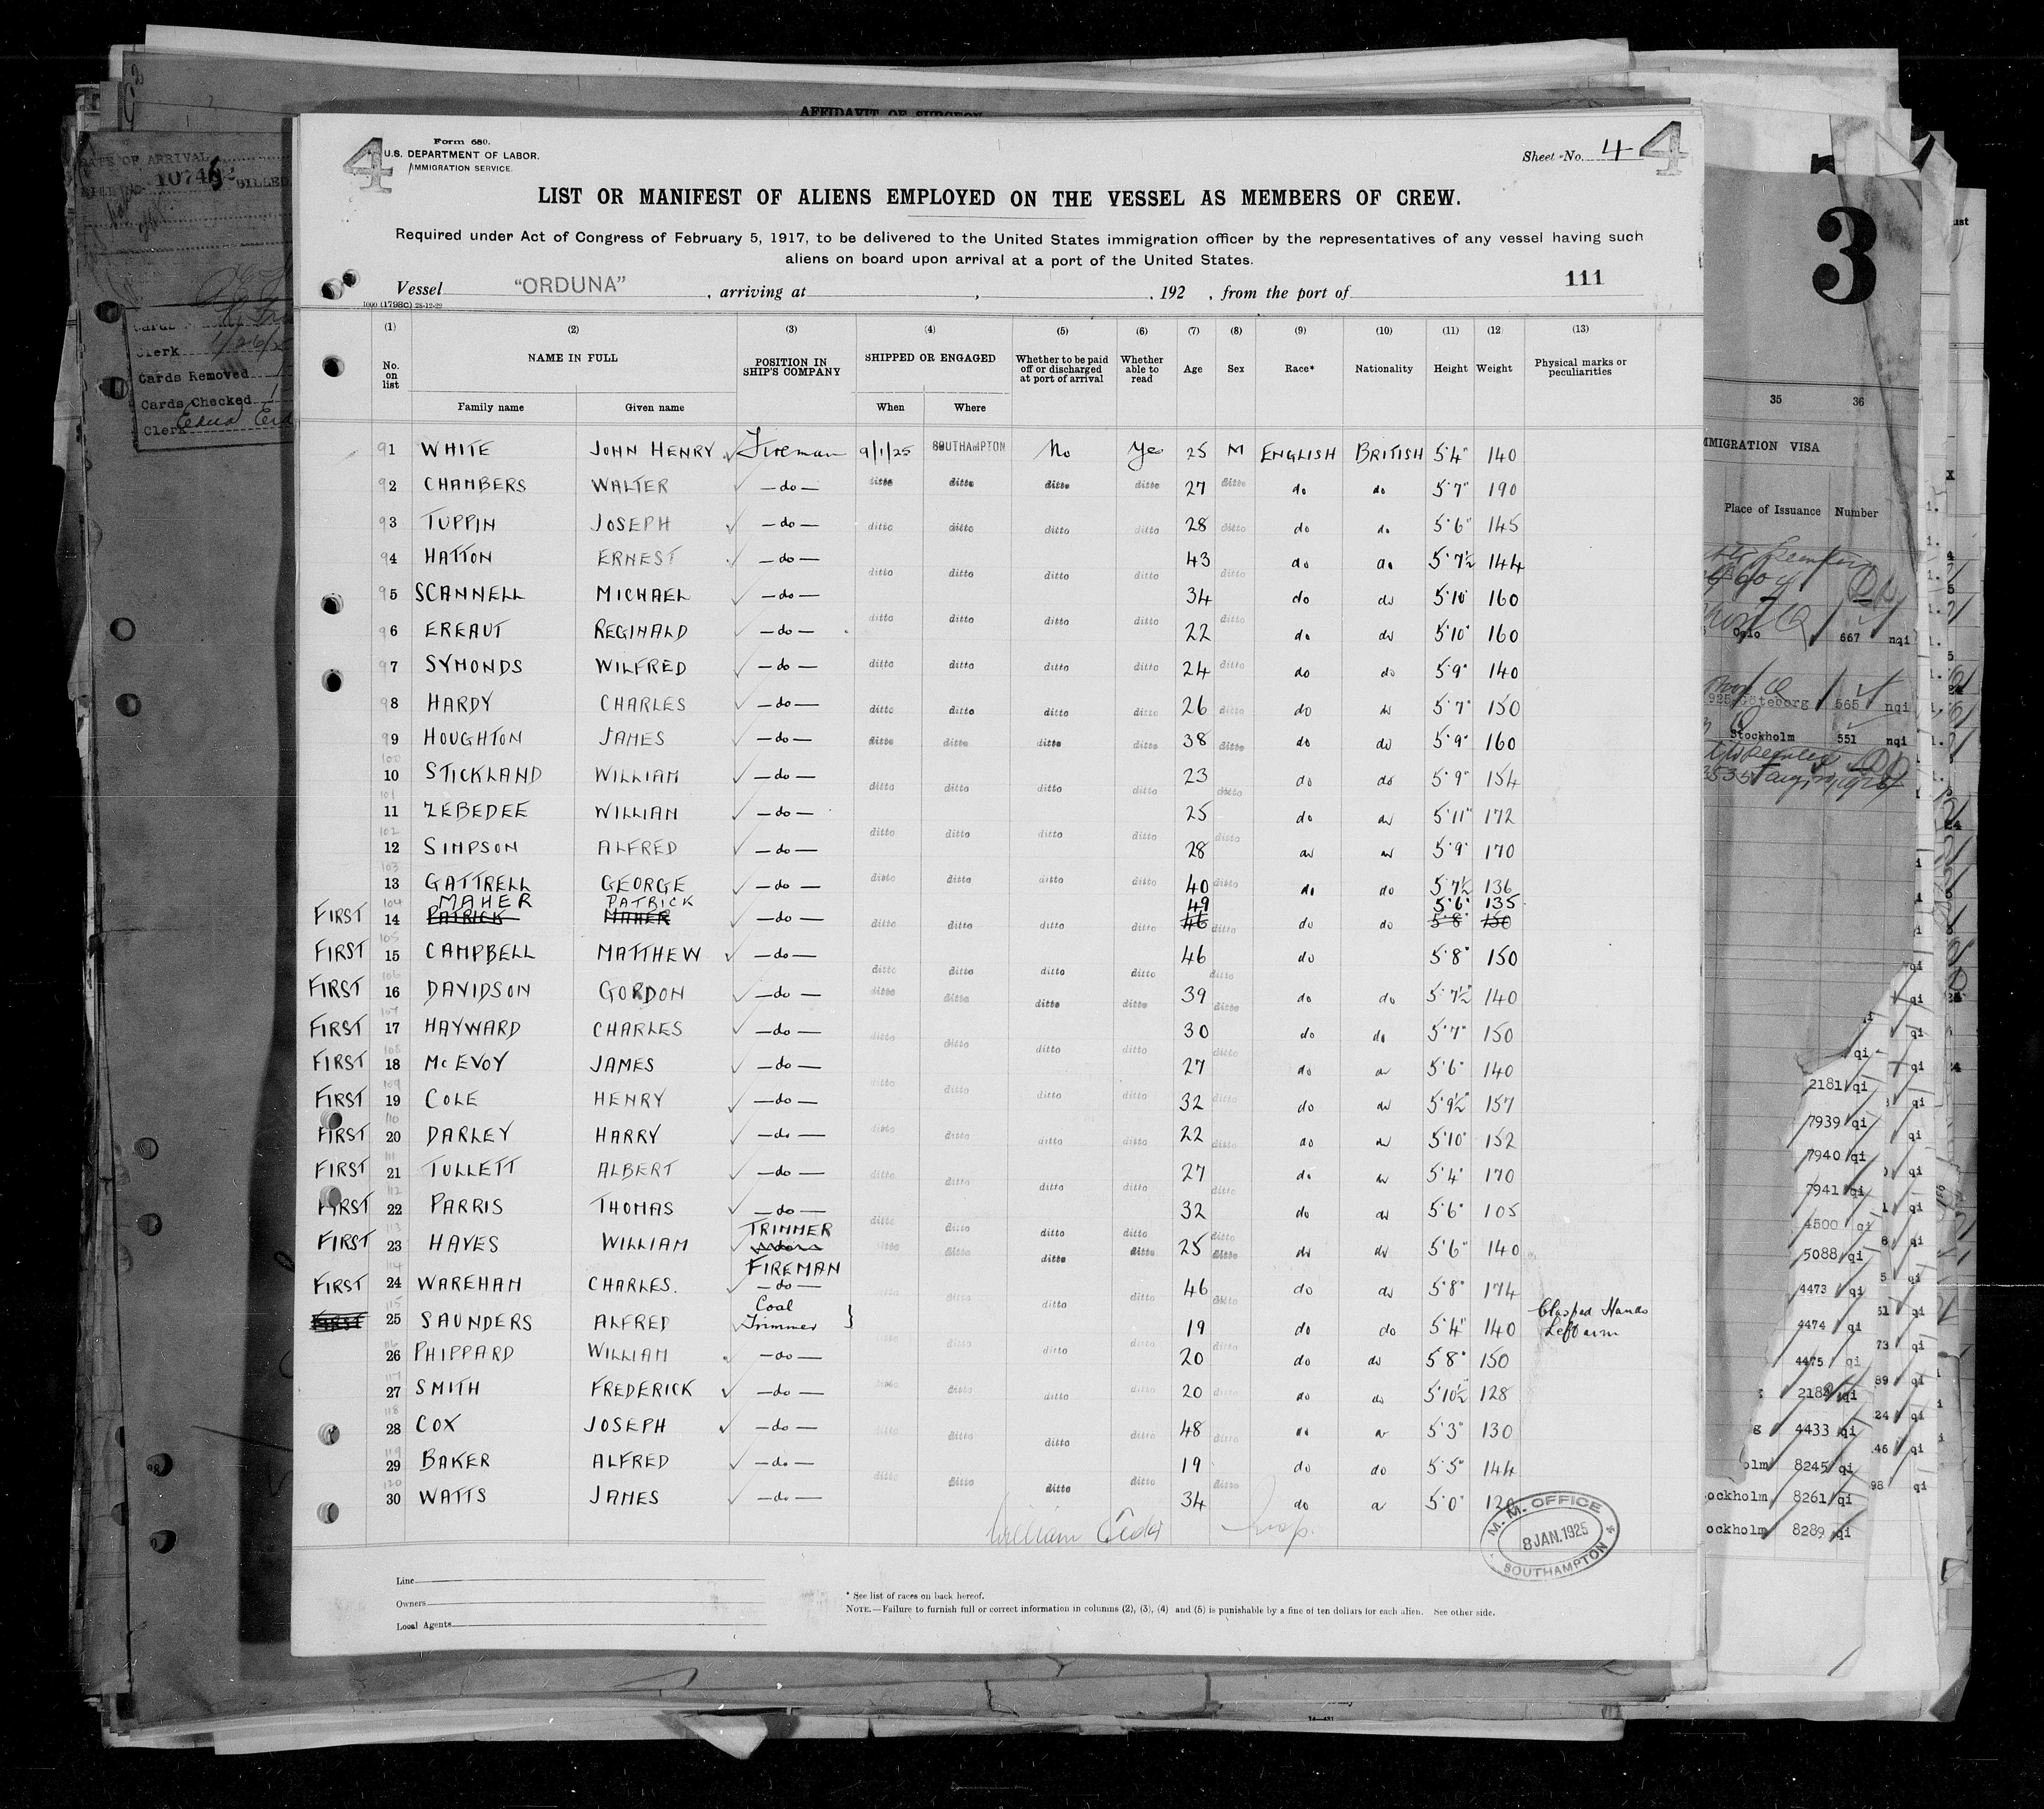 AFFIDAVIT OF SURGEON
4
Form 680.
U.S. DEPARTMENT OF LABOR.
IMMIGRATION SERVICE.
Sheet No. 4
4
LIST OR MANIFEST OF ALIENS EMPLOYED ON THE VESSEL AS MEMBERS OF CREW.
Required under Act of Congress of February 5, 1917, to be delivered to the United States immigration officer by the representatives of any vessel having such
aliens on board upon arrival at a port of the United States.
111
Vessel "ORDUNA", arriving at , , 192 , from the port of
1000 (1798C) 28-12-22
(1) (2) (3) (4) (5) (6) (7) (8) (9) (10) (11) (12 (13)
No. on list NAME IN FULL POSITION IN SHIP'S COMPANY SHIPPED OR ENGAGED Whether to be paid off or discharged at port of arrival Whether able to read Age Sex Race* Nationality Height Weight Physical marks or peculiarities
Family name Given name When Where
91 WHITE JOHN HENRY Fireman 9/1/25 SOUTHAMPTON No Yes 25 M ENGLISH BRITISH 5'4" 140
92 CHAMBERS WALTER —do— ditto ditto ditto ditto 27 ditto do do 5'7" 190
93 TUPPIN JOSEPH —do— ditto ditto ditto ditto 28 ditto do do 5'6" 145
94 HATTON ERNEST —do— ditto ditto ditto ditto 43 ditto do do 5'7½ 144
95 SCANNELL MICHAEL —do— ditto ditto ditto ditto 34 ditto do do 5'10" 160
96 EREAUT REGINALD —do— 22 do do 5'10" 160
97 SYMONDS WILFRED —do— ditto ditto ditto ditto 24 ditto do do 5'9" 140
98 HARDY CHARLES —do— ditto ditto ditto ditto 26 ditto do do 5'7" 150
99 HOUGHTON JAMES —do— ditto ditto ditto ditto 38 ditto do do 5'9" 160
100
10 STICKLAND WILLIAM —do— ditto ditto ditto ditto 23 ditto do do 5'9" 154
101
11 ZEBEDEE WILLIAM —do— ditto ditto ditto ditto 25 ditto do do 5'11" 172
102
12 SIMPSON ALFRED —do— 28 do do 5'9" 170
103
13 GATTRELL GEORGE —do— ditto ditto ditto ditto 40 ditto do do 5'7½ 136
104 MAHER PATRICK 49 5'6" 135
FIRST 14 PATRICK MAHER —do— ditto ditto ditto ditto 46 ditto do do 5'8" 150
105
FIRST 15 CAMPBELL MATTHEW —do— ditto ditto ditto ditto 46 ditto do 5'8" 150
106
FIRST 16 DAVIDSON GORDON —do— ditto ditto ditto ditto 39 ditto do do 5'7½" 140
107
FIRST 17 HAYWARD CHARLES —do— ditto ditto ditto ditto 30 ditto do do 5'7" 150
108
FIRST 18 McEVOY JAMES —do— 27 do do 5'6" 140
109
FIRST 19 COLE HENRY —do— ditto ditto ditto ditto 32 ditto do do 5'9½" 157
110
FIRST 20 DARLEY HARRY —do— ditto ditto ditto ditto 22 ditto do do 5'10" 152
111
FIRST 21 TULLETT ALBERT —do— ditto ditto ditto ditto 27 ditto do do 5'4" 170
112
FIRST 22 PARRIS THOMAS —do— ditto ditto ditto ditto 32 ditto do do 5'6" 105
113 TRIMMER
FIRST 23 HAYES WILLIAM ditto ditto ditto ditto 25 ditto do do 5'6" 140
114 FIREMAN
FIRST 24 WAREHAM CHARLES. —do— ditto ditto ditto ditto 46 ditto do do 5'8" 174
115 Coal Clasped Hands
FIRST 25 SAUNDERS ALFRED Trimmer } 19 do do 5'4" 140 Left arm
116
26 PHIPPARD WILLIAM —do— ditto ditto ditto ditto 20 ditto do do 5'8" 150
117
27 SMITH FREDERICK —do— ditto ditto ditto ditto 20 ditto do do 5'10½ 128
118
28 COX JOSEPH —do— ditto ditto ditto ditto 48 ditto do do 5'3" 130
119
29 BAKER ALFRED —do— ditto ditto ditto ditto 19 ditto do do 5'5" 144
120
30 WATTS JAMES —do— 34 do do 5'0" 120
William
M. M. OFFICE
8 JAN. 1925
SOUTHAMPTON
Line
Owners
Local Agents
* See list of races on back hereof.
NOTE.—Failure to furnish full or correct information in columns (2), (3), (4) and (5) is punishable by a fine of ten dollars for each alien. See other side.
DATE OF ARRIVAL
BILLED
Clerk
Cards Removed
Cards Checked 1
Clerk
3
35 36
IMMIGRATION VISA
Place of Issuance Number
Oslo 667 nqi
1925 Göteborg 565 nqi
Stockholm 551 nqi
2181 qi
7939 qi
7940 qi
7941 qi
4500 qi
5088 qi
4473 qi
4474 qi
4475 qi
2182 qi
4433 qi
8245 qi
ockholm 8261 qi
ockholm 8289 qi